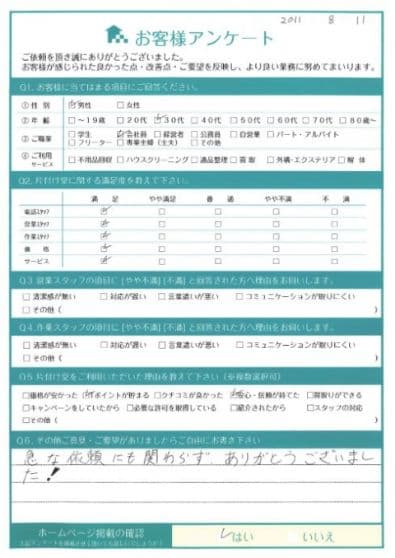 2011 8 11
お客様アンケート
ご依頼を頂き誠にありがとうございました。
お客様が感じられた良かった点・改善点・ご要望を反映し、より良い業務に努めてまいります。
Q1. お客様に当てはまる項目にご回答ください。
① 性別 ☑男性 □女性
② 年齢 □～19歳 □20代 ☑30代 □40代 □50代 □60代 □70代 □80歳～
③ ご職業 □学生 ☑会社員 □経営者 □公務員 □自営業 □パート・アルバイト
□フリーター □専業主婦（主夫） □その他
④ ご利用サービス □不用品回収 □ハウスクリーニング □遺品整理 □買取 □外構・エクステリア □解体
Q2. 片付け堂に関する満足度を教えて下さい。
満足 やや満足 普通 やや不満 不満
電話スタッフ ☑ □ □ □ □
営業スタッフ ☑ □ □ □ □
作業スタッフ ☑ □ □ □ □
価格 ☑ □ □ □ □
サービス ☑ □ □ □ □
Q3. 営業スタッフの項目に［やや不満］［不満］と回答された方へ理由をお伺いします。
□清潔感が無い □対応が遅い □言葉遣いが悪い □コミュニケーションが取りにくい
□その他（ ）
Q4. 作業スタッフの項目に［やや不満］［不満］と回答された方へ理由をお伺いします。
□清潔感が無い □対応が遅い □言葉遣いが悪い □コミュニケーションが取りにくい
□その他（ ）
Q5. 片付け堂をご利用いただいた理由を教えて下さい（※複数選択可）
□価格が安かった ☑ポイントが貯まる □クチコミが良かった ☑安心・信頼が持てた □買取りができる
□キャンペーンをしていたから □必要な許可を取得している □紹介されたから □スタッフの対応
□その他（ ）
Q6. その他ご意見・ご要望がありましたらご自由にお書き下さい
急な依頼にも関わらず、ありがとうございまし
た！
ホームページ掲載の確認 ☑はい □いいえ